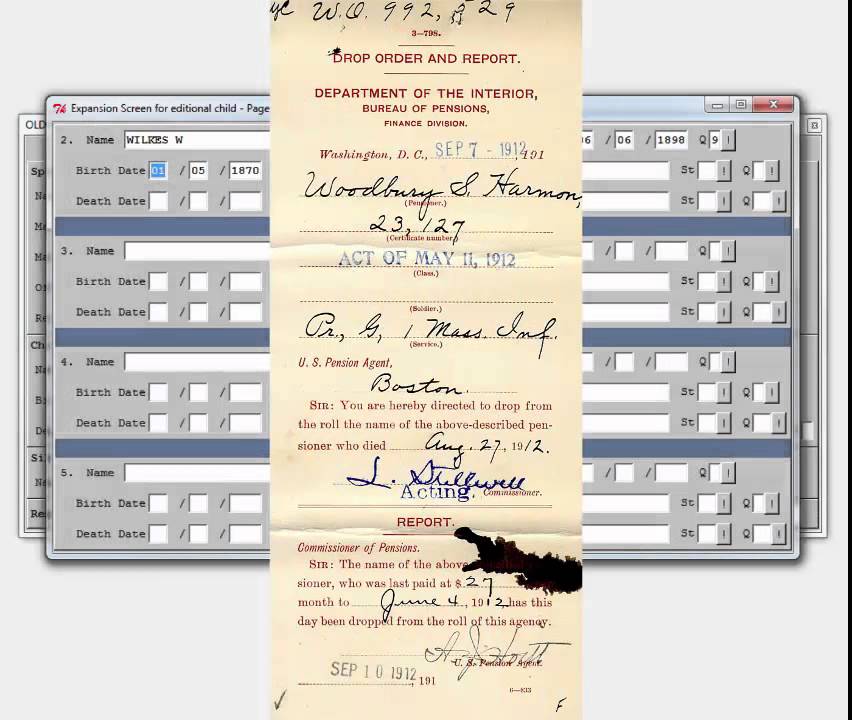 W.O. 992, 529
3—798.
DROP ORDER AND REPORT.
DEPARTMENT OF THE INTERIOR,
BUREAU OF PENSIONS,
FINANCE DIVISION.
Washington, D. C., SEP 7 - 1912, 191
Woodbury S. Harmon,
(Pensioner.)
23,127
(Certificate number.)
ACT OF MAY 11, 1912
(Class.)
(Soldier.)
Pr., G, 1 Mass. Inf.
(Service.)
U. S. Pension Agent,
Boston.
SIR: You are hereby directed to drop from
the roll the name of the above-described pen-
sioner who died Aug. 27, 1912.
L. Stillwell
Acting. Commissioner.
REPORT.
Commissioner of Pensions.
SIR: The name of the above
sioner, who was last paid at $ 27
month to June 4, 1912 has this
day been dropped from the roll of this agency.
U. S. Pension Agent.
SEP 10 1912, 191
6—833
F
Expansion Screen for editional child - Page
OLD
2. Name WILKES W 06 / 1898 Q 9 !
Birth Date 01 / 05 / 1870 St ! Q !
Death Date / / St ! Q !
3. Name / / Q !
Birth Date / / St ! Q !
Death Date / / St ! Q !
4. Name / / Q !
Birth Date / / St ! Q !
Death Date / / St ! Q !
5. Name / / Q !
Birth Date / / St ! Q !
Death Date / / St ! Q !